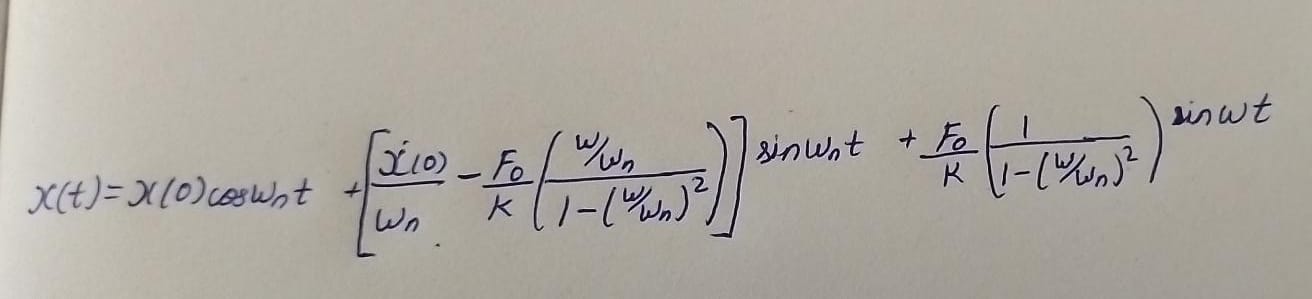 x(t) = x(0) cos ωₙt + [ẋ(0)/ωₙ − F₀/K ((ω/ωₙ)/(1−(ω/ωₙ)²))] sin ωₙt + F₀/K (1/(1−(ω/ωₙ)²)) sin ωt